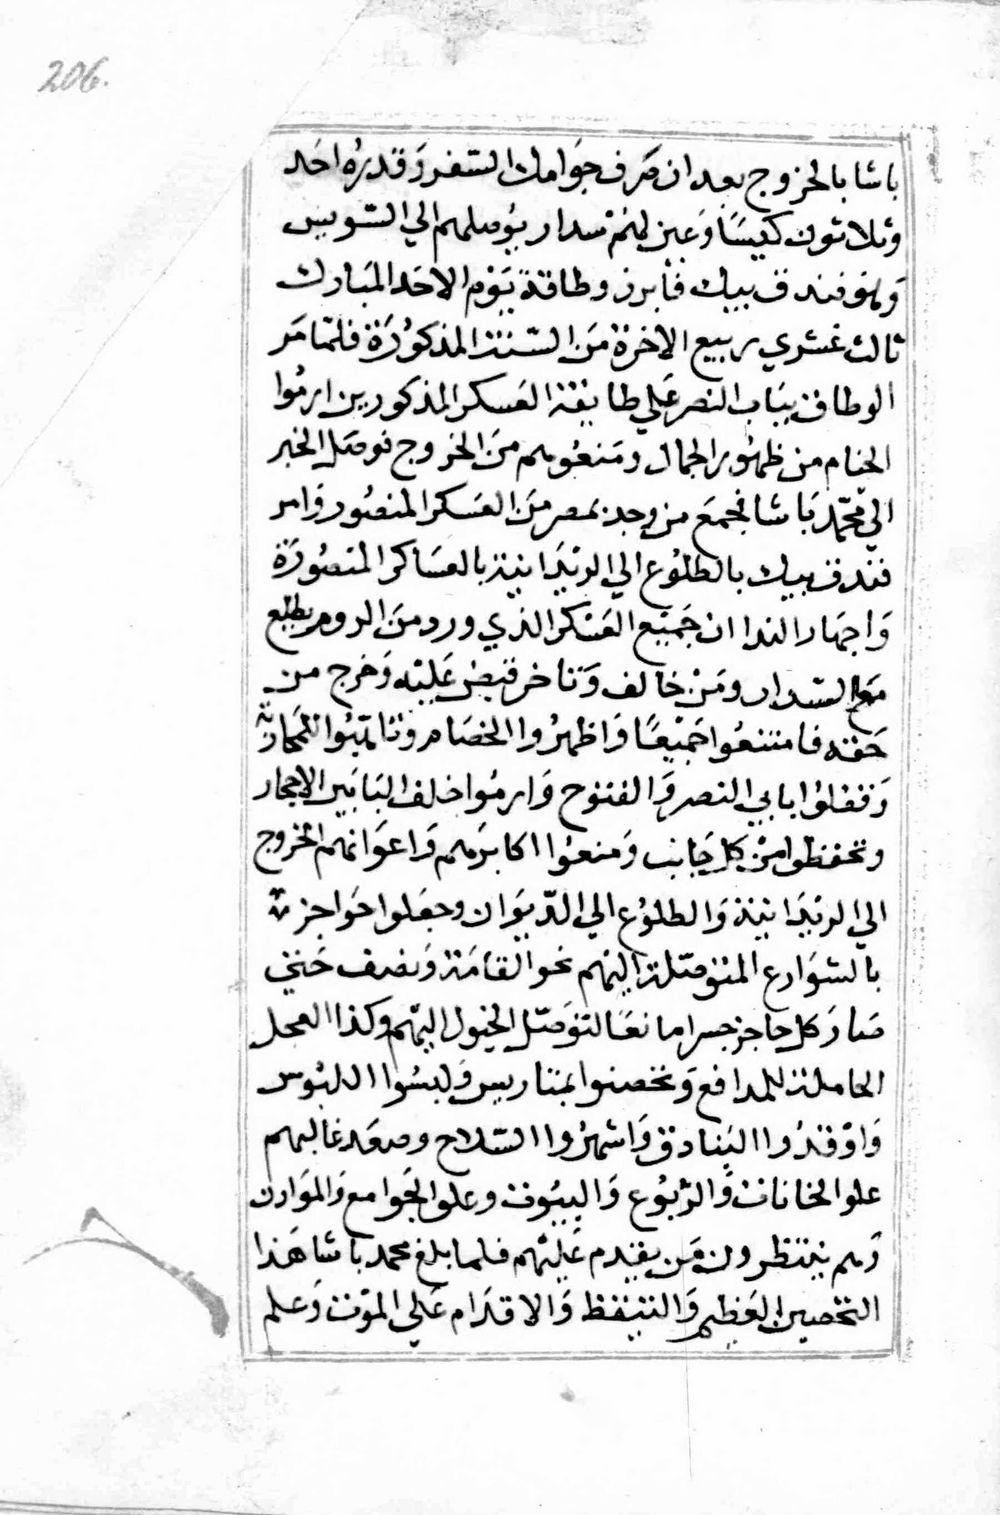 206.
باشا بالخروج بعد ان صَرف جَوامك السّفر وَقدرُه احَد
وثلاثون كيسًا وَعين لهُم سدار يوُصلهم الي السّويس
وَهو فندق بيك فأبرز وطاقة يَوْم الاحَد المبَارك
ثالث عشري ربيع الاخرة مَن السّنة المذكوُرَة فلمّا مَر
الوطاق ببَاب النصر عَلي طايفة العَسكر المذكورين ارموُا
الخيام من ظهوُر الجمال ومَنعُوهم مَن الخروج فوصَل الخبر
الي محمّد بَاشا فجمعَ من وجد بمصر مَن العَسكر المنصُور وَامر
فندق بيك بالطلوُع الي الريدَانية بالعسَاكر المنصُورَة
وَاجهَار الندا ان جَميع العَسكر الذي ورد من الروم يطلع
مَع السّدار ومَنْ خالف وَتاخر قبض عَليْه وَخرج من
حَقه فامتنعُوا جَميْعًا وَاظهرُوا الخصَام وتاهّبُوا للمحَاربة
وَقفلوُا بابي النصر وَالفتوح وَارموُا خلف البَابَين الاحجار
وتحفظوا منْ كل جَانب وَمنعوُا اكابرَهم وَاعوَانهم الخروج
الي الريدَانية وَالطلوُع الي الدّيوَان وجعَلوا حَواجز
بالشوَارع المتوصّلة اليْهم نحو القامَة وَنصف حَتي
صَارَ كل حاجز جسرا مانعًا لتوَصّل الخيول اليْهم وكذا العجل
الحاملة للمدافع وَتحصنوا بمتاريس وَلبسُوا اللبُوس
وَاوْقدُوا البَنادق وَاشهرُوا السّلاح وصعَد غالبهم
علو الخانات وَالربُوع وَالبيوُت وعلو الجَوامع وَالموَارد
وَهم ينتظرون مَن يقدم عَليْهم فلما بلغ محمد باشا هَذا
التحصين العَظيم وَالتيقظ وَالاقدَام عَلي الموْت وَعلم